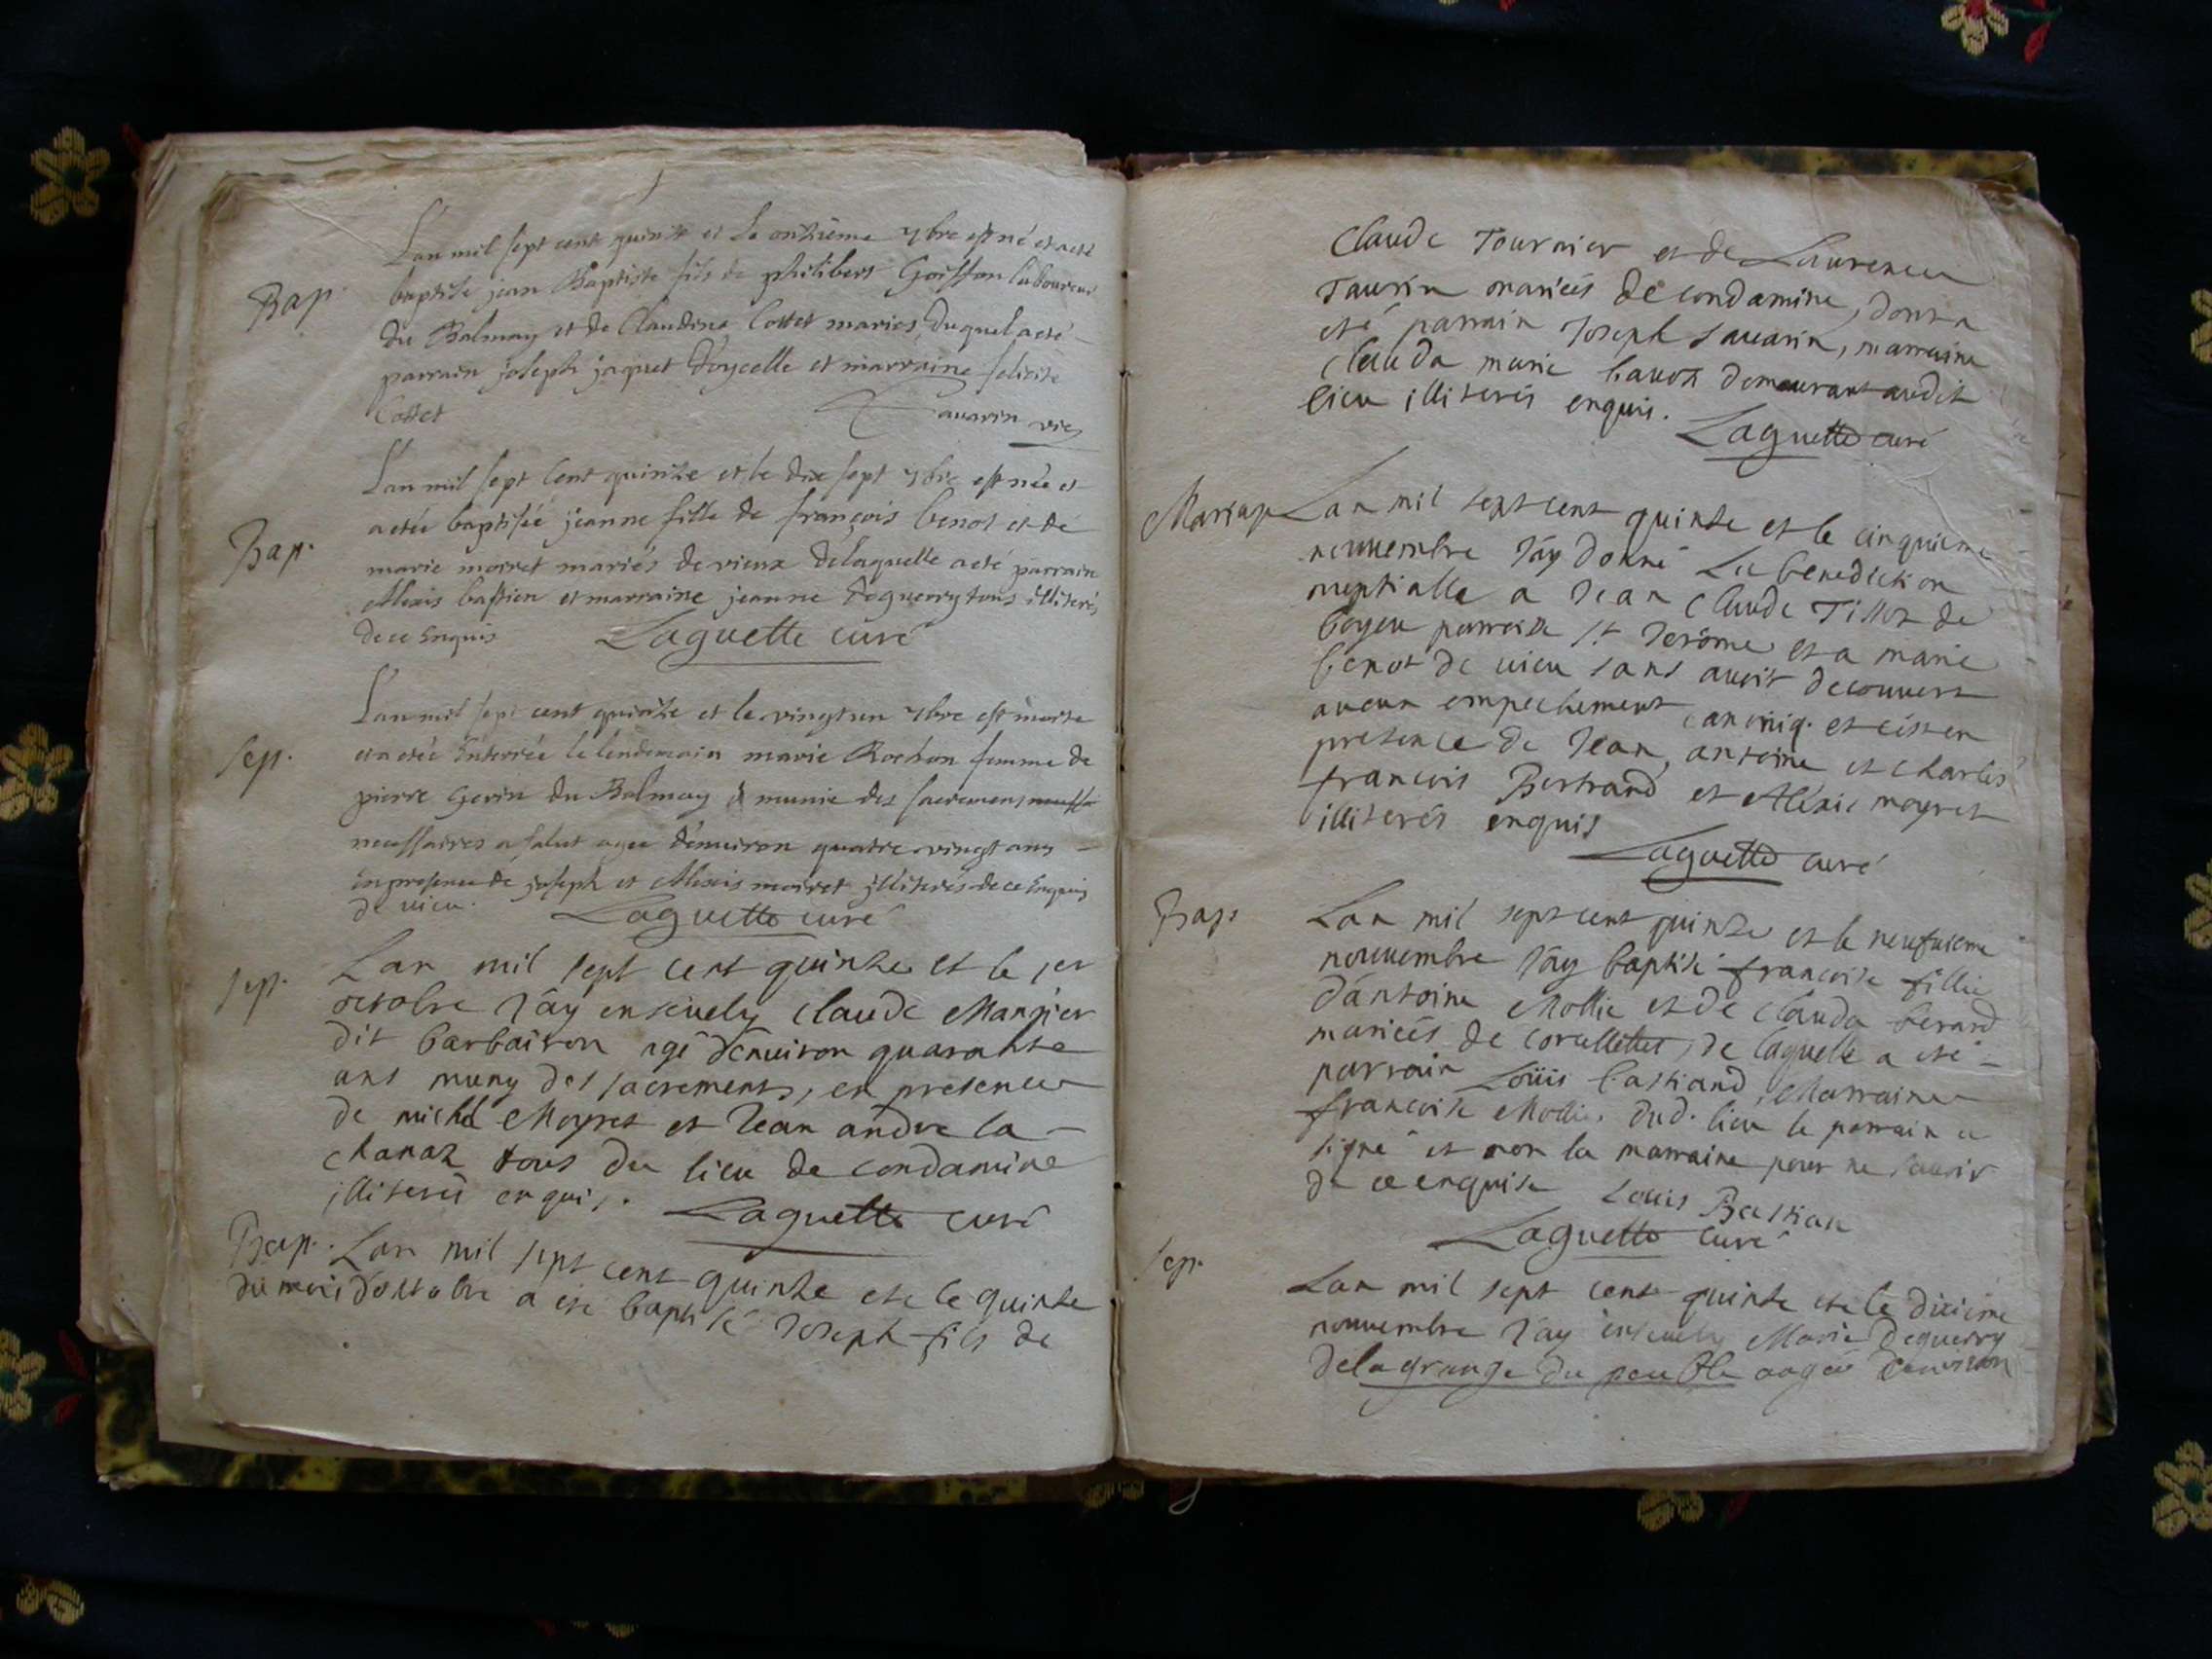 Bap.
L'an mil sept cent quinze et le onzième 7bre est né et a eté
baptisé jean Baptiste fils de philibert Goiffon laboureur
du Balmay et de Claudine Cottet mariés, duquel a eté
parrain joseph jaquet d'oycelle et marraine felicité
Cottet Savarin vic
Bap.
L'an mil sept Cent quinze et le dix sept 7bre est née et
a etée baptisée jeanne fille de françois benot et de
marie moiret mariés de vieux de laquelle a eté parrain
Alexis bastien et marraine jeanne Deguerry tous illiterés
de ce Enquis Laguette curé
Sep.
L'an mil sept cent quinze et le vingt un 7bre est morte
et a etée Enterrée le lendemain marie Rochon femme de
pierre Gerin du Balmay munie des sacremens
necessaires a salut agee d'enuiron quatre vingt ans
En presence de joseph et Alexis moiret illiterés de ce Enquis
de uieu. Laguette curé
Sep.
Lan mil sept cent quinze et le 1er
octobre J'ay enseuely Claude Mangier
dit barbairon agé d'enuiron quarante
ans muny des sacrements, en presence
de michel Moyret et Jean andre la
chanaz tous du lieu de condamine
illiterés enquis. Laguette curé
Bap. Lan mil sept cent quinze et le quinze
du mois d'octobre a eté baptisé Joseph fils de
Claude Tournier et de Laurence
Taurin mariés de condamine, dont a
eté parrain Joseph Sauarin, marraine
Clauda marie bauoz demeurant audit
lieu illiterés enquis.
Laguette curé
Mariag.
Lan mil sept cent quinze et le cinquieme
nouuembre J'ay donné La benediction
nuptialle a Jean Claude Tilloz de
boyeu parroisse St Jerôme et a marie
benot de uieu sans auoir decouuert
aucun empechement canoniq. et c'ést en
presence de Jean, antoine et charles
francois Bertrand et Aléxis moyret
illiterés enquis
Laguette curé
Bap.
Lan mil sept cent quinze et le neufuieme
nouuembre J'ay baptisé francoise fillie
d'antoine Mollie et de Clauda berard
mariés de corcellettes, de laquelle a eté
parrain Loüis bastiand, Marraine
francoise Mollie. dud. lieu le parrain a
signé et non la marraine pour ne sauoir
de ce enquise Louis Bastian
Laguette curé
Sep.
Lan mil sept cent quinze et le dixiéme
nouuembre J'ay enseuely Marie Deguerry
de la grange du peuble aagée d'enuiron